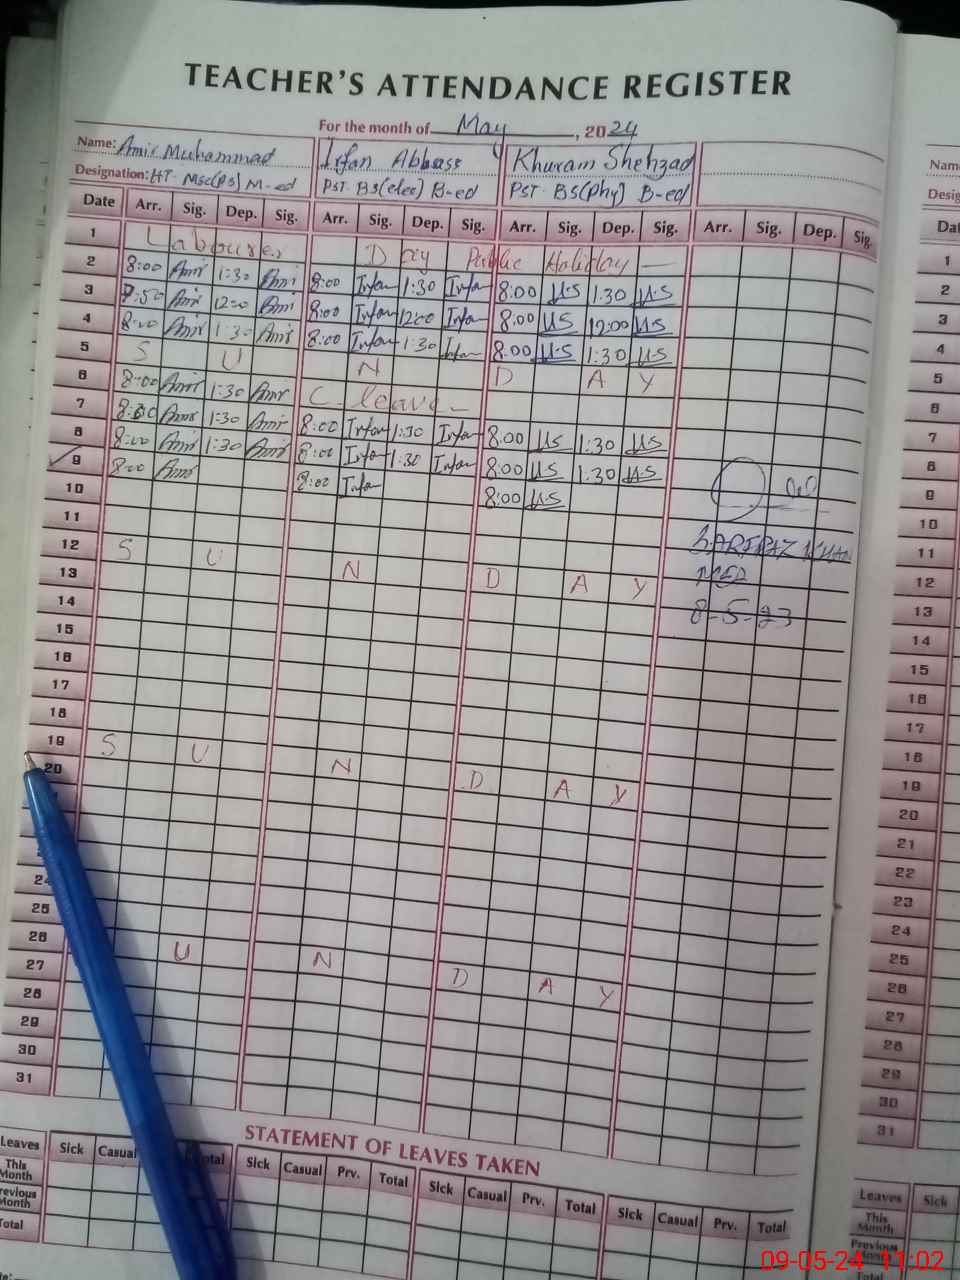 TEACHER'S ATTENDANCE REGISTER
For the month of May, 2024
Name: Amir Muhammad Irfan Abbass Khuram Shehzad
Designation: HT. Msc(PS) M-ed PST BS(elec) B-ed PST BS(Phy) B-ed
Date Arr. Sig. Dep. Sig. Arr. Sig. Dep. Sig. Arr. Sig. Dep. Sig. Arr. Sig. Dep. Sig.
1 Labourer Day Public Holiday —
2 8:00 Amir 1:30 Amir 8:00 Irfan 1:30 Irfan 8:00 U.S 1:30 U.S
3 7:50 Amir 12:00 Amir 8:00 Irfan 1200 Irfan 8:00 U.S 12:00 U.S
4 8:00 Amir 1:30 Amir 8:00 Irfan 1:30 Irfan 8:00 U.S 1:30 U.S
5 S U N D A Y
6 8:00 Amir 1:30 Amir C. leave -
7 8:00 Amir 1:30 Amir 8:00 Irfan 1:30 Irfan 8:00 U.S 1:30 U.S
8 8:00 Amir 1:30 Amir 8:00 Irfan 1:30 Irfan 8:00 U.S 1:30 U.S
9 8:00 Amir 8:00 Irfan 8:00 U.S
10
11
12 S U N D A Y
13
14
15
16
17
18
19 S U N D A Y
20
24
25
26 U N D A Y
27
28
29
30
31
KHAN
8-5-23
STATEMENT OF LEAVES TAKEN
Leaves Sick Casual Total Sick Casual Prv. Total Sick Casual Prv. Total Sick Casual Prv. Total
This Month
Previous Month
Total
Name
Desig
Dat
1
2
3
4
5
6
7
8
9
10
11
12
13
14
15
16
17
18
19
20
21
22
23
24
25
26
27
28
29
30
31
Leaves Sick
This Month
Previous Month
Total
09-05-24 11:02